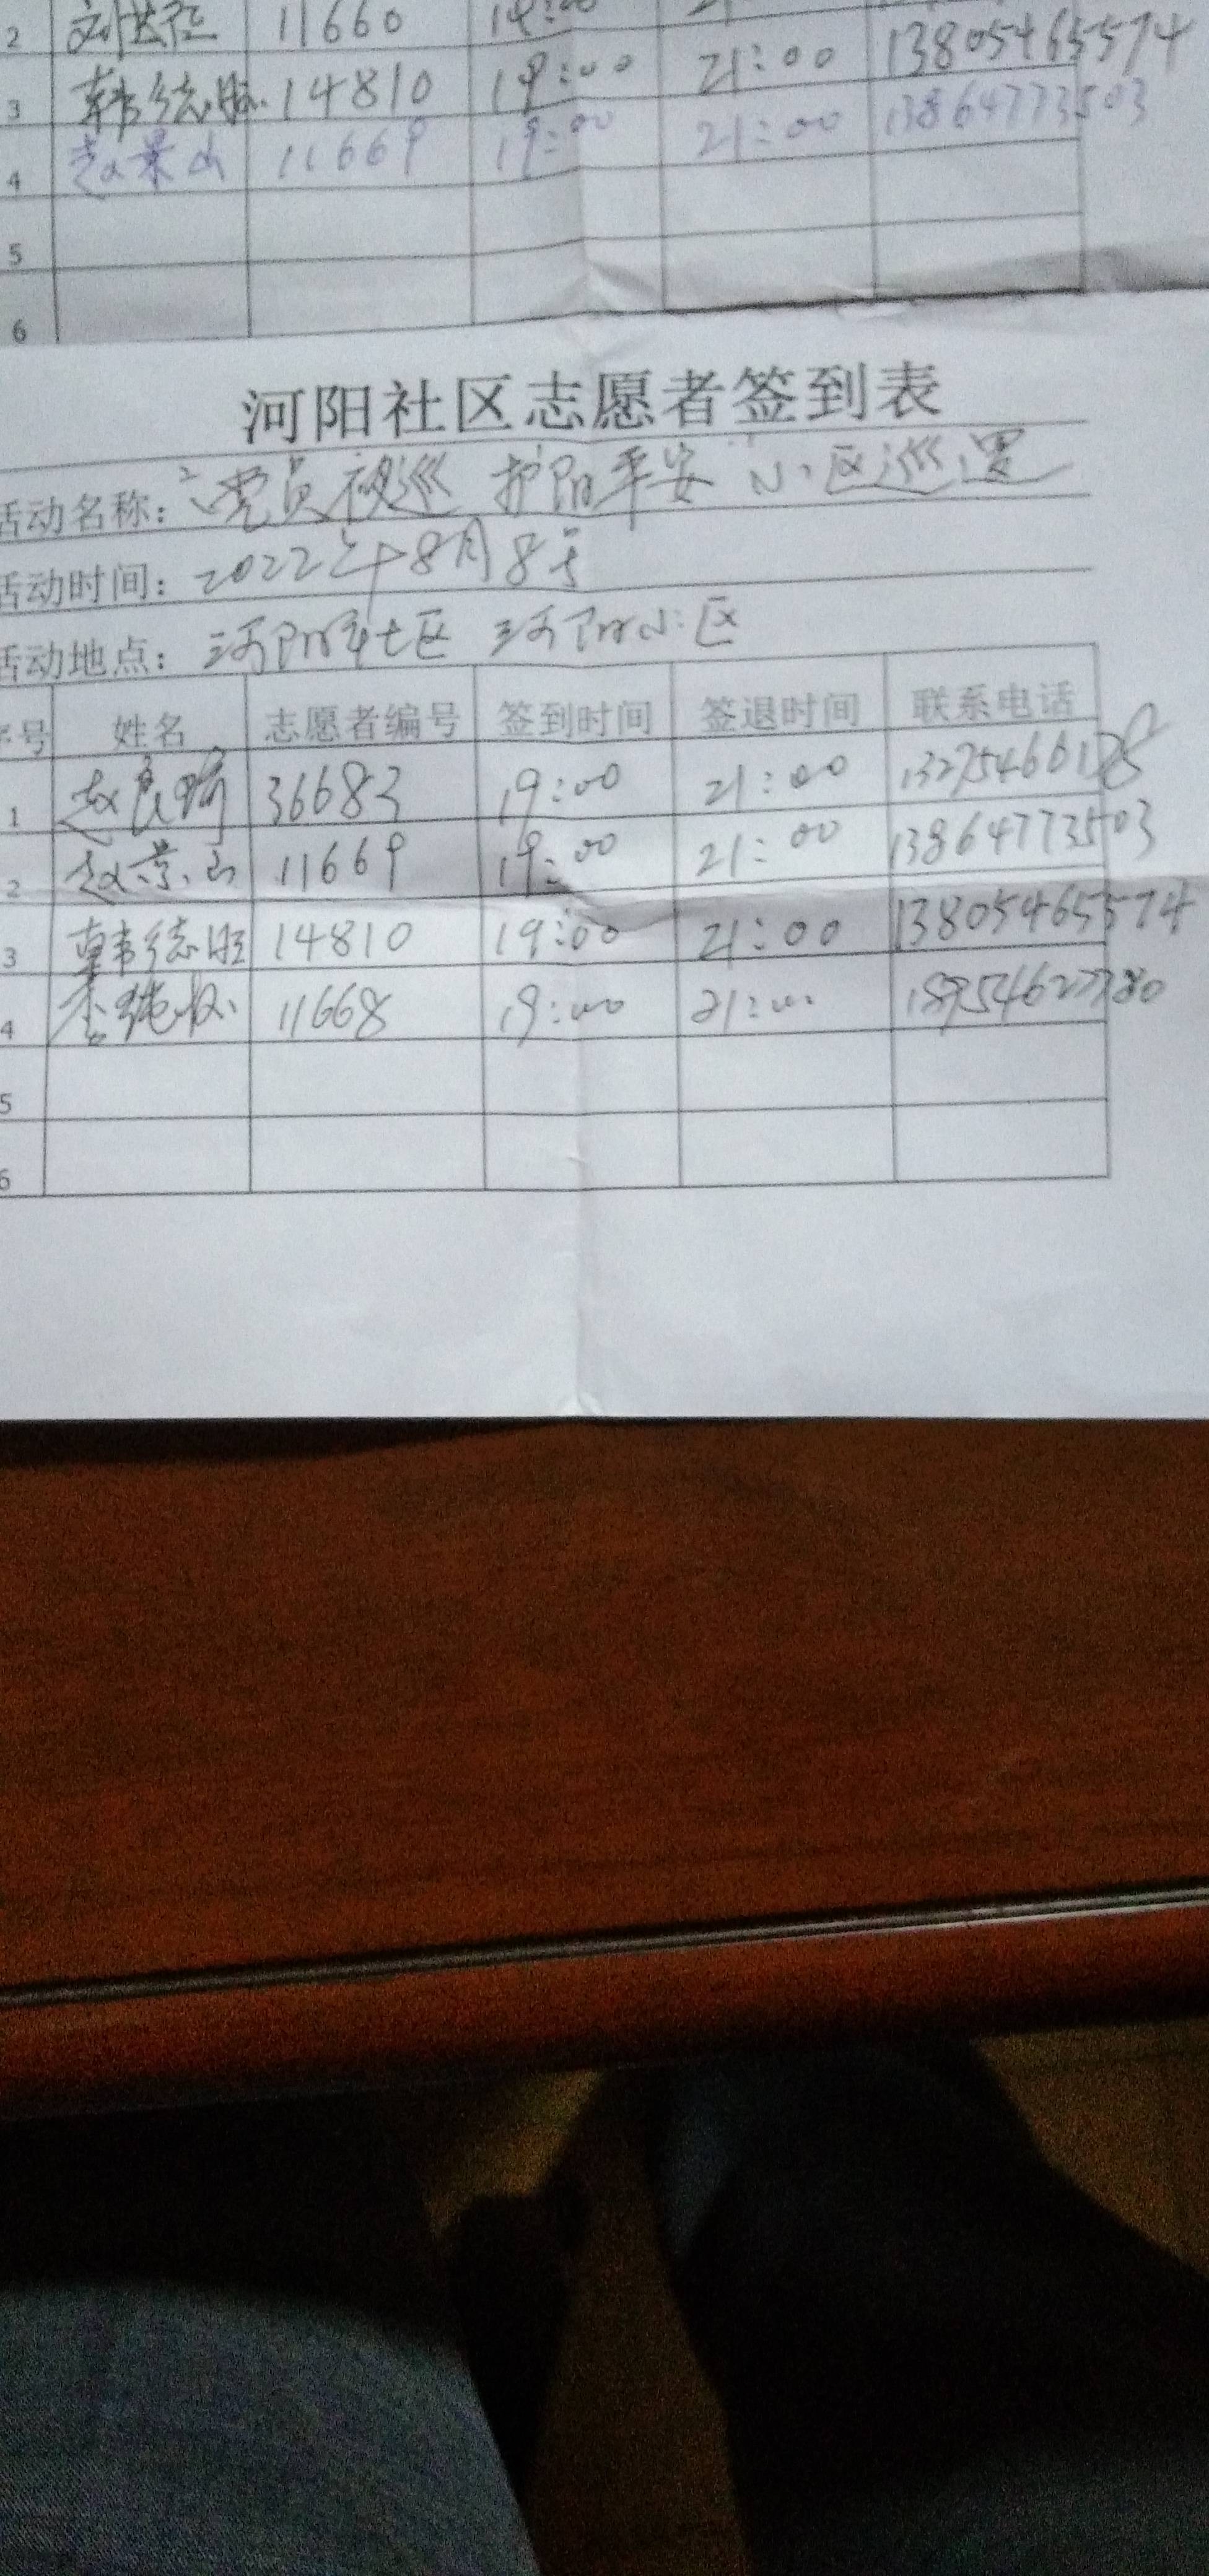 2 11660 19:00
3 韩德旺 14810 19:00 21:00 13805465574
4 赵景山 11669 19:00 21:00 13864773503
5
6
河阳社区志愿者签到表
活动名称: 党员夜巡 护阳平安 小区巡逻
活动时间: 2022年8月8号
活动地点: 河阳社区 河阳小区
序号 姓名 志愿者编号 签到时间 签退时间 联系电话
1 赵良 36683 19:00 21:00
2 赵景山 11669 19:00 21:00 13864773503
3 韩德旺 14810 19:00 21:00 13805465574
4 李 11668 19:00 21:00
5
6